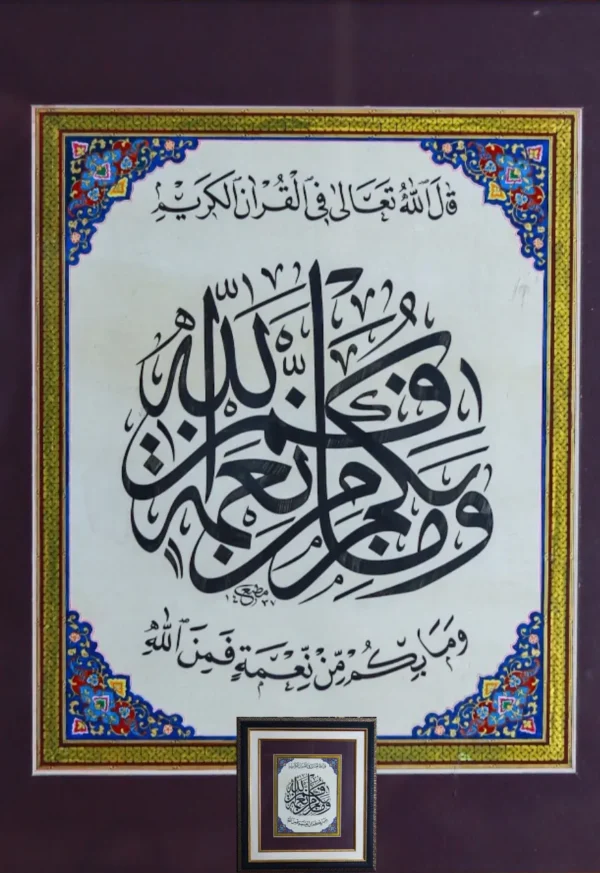 قَالَ ٱللَّهُ تَعَالَىٰ فِي ٱلْقُرْآنِ ٱلْكَرِيمِ
وما بكم من نعمة فمن الله
١٤٣٧
وَمَا بِكُمْ مِّنْ نِّعْمَةٍ فَمِنَ ٱللَّهِ